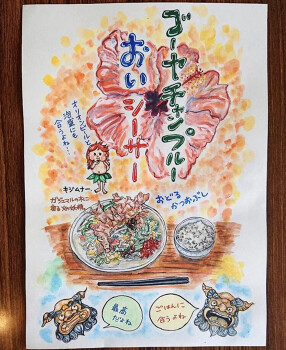 ゴーヤチャンプルー
おいシーサー
オリオンビールと
泡盛にも
合うよね…
キジムナー
ガジュマルの木に
宿る沖縄の妖精
おどる
かつおぶし
最高
だよね
ごはんに
合うよね